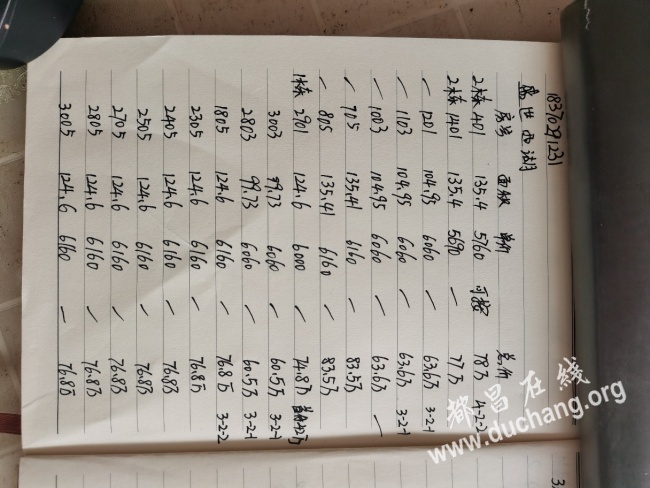 18370291231
盛世西湖
房号 面积 单价 总价
2栋 401 135.4 5760 可按 78万 4-2-2
2栋 1401 135.4 5690 一 77万
一 1201 104.95 6060 一 63.6万 3-2-1
一 1103 104.95 6060 一 63.6万 3-2-1
一 1003 104.95 6060 一 63.6万 一
一 705 135.41 6160 一 83.5万
一 805 135.41 6160 一 83.5万
1栋 2901 124.6 6000 一 74.8万
3003 99.73 6060 一 60.5万 3-2-1
2803 99.73 6060 一 60.5万 3-2-1
1805 124.6 6160 一 76.8万 3-2-2
2305 124.6 6160 一 76.8万
2405 124.6 6160 一 76.8万
2505 124.6 6160 一 76.8万
2705 124.6 6160 一 76.8万
2805 124.6 6160 一 76.8万
3005 124.6 6160 一 76.8万
都昌在线
www.duchang.org